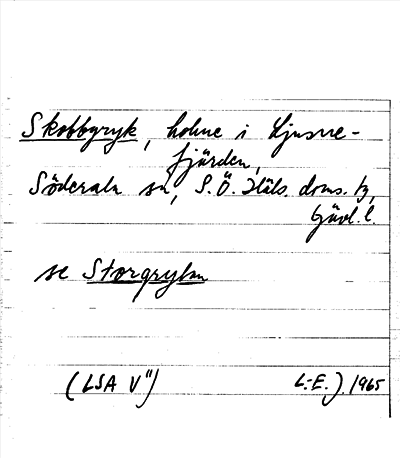 Skobbgryk, holme i Ljusne-
fjärden,
Söderala sn, S.Ö. Häls. doms. tg,
Gävl. l.
se Storgrykan
(LSA V")
L.-E. J. 1965